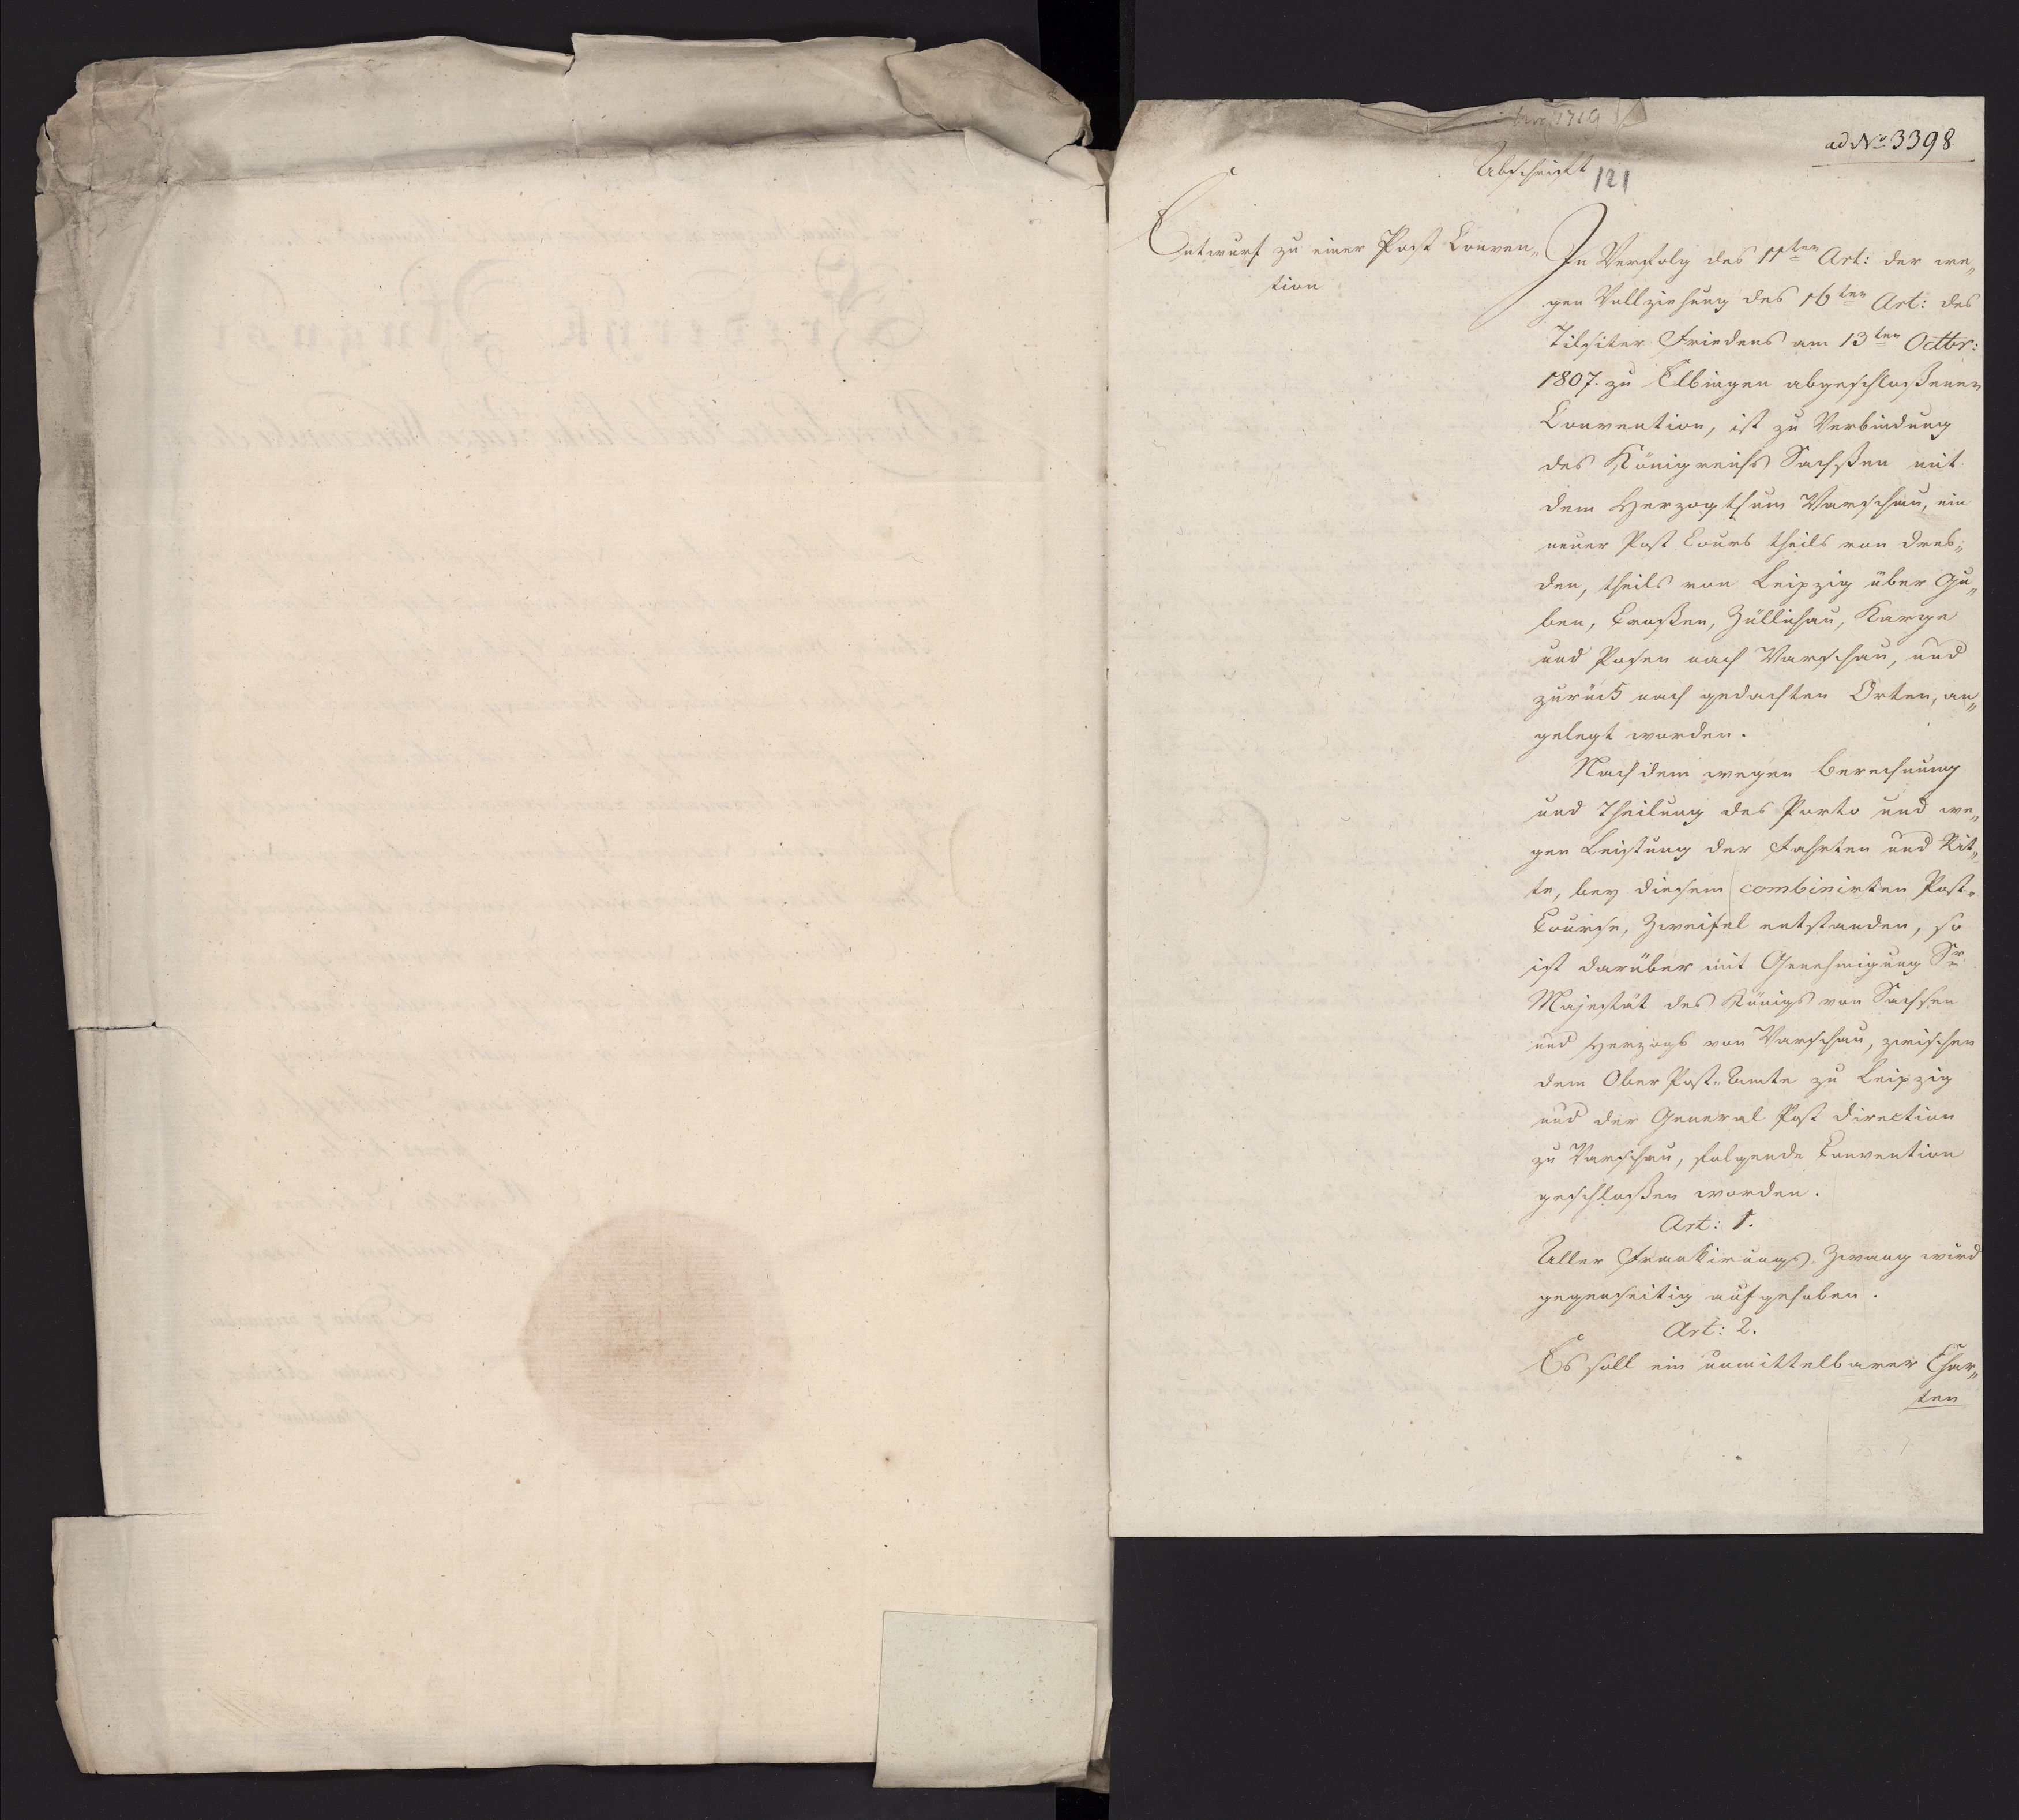 ad No. 3398
Abschrift
121
Entwurf zu einer Post Conven„
tion
In Verfolg des 11ten Art: der we„
gen Vollziehung des 16ten Art: des
Tilsiter Friedens am 13ten Octbr:
1807. zu Elbingen abgeschloßenen
Convention, ist zu Verbindung
des Königreichs Sachßen mit
dem Herzogthum Warschau, ein
neuer Post Cours theils von Dres„
den, theils von Leipzig über Gu„
ben, Croßen, Züllichau, Karge
und Posen nach Warschau, und
zurück nach gedachten Orten, an„
gelegt worden.
Nachdem wegen Berechnung
und Theilung des Porto und we„
gen Leistung der Fahrten und Rit„
te, bey diesem combinirten Post„
Course, Zweifel entstanden, so
ist darüber mit Genehmigung Sr.
Majestät des Königs von Sachsen
und Herzogs von Warschau, zwischen
dem Ober Post„Amte zu Leipzig
und der General Post Direction
zu Warschau, folgende Convention
geschloßen worden.
Art: 1.
Aller Frankirungs„Zwang wird
gegenseitig aufgehoben.
Art: 2.
Es soll ein unmittelbarer Char„
ten